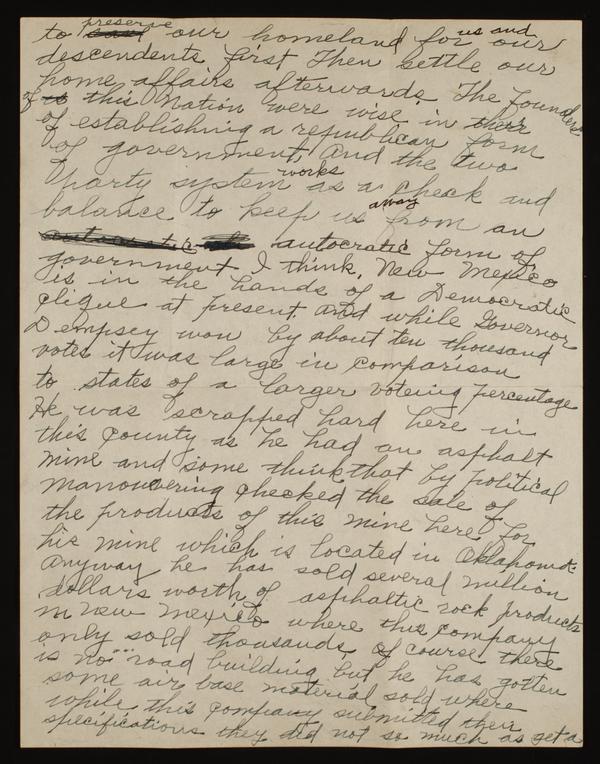 to preserve our homeland for us and our
descendents first Then settle our
home affairs afterwards. The founders
of this Nation were wise in their
of establishing a republican form
of government, and the two
party system works as a check and
balance to keep us away from an
autocratic form of
government I think. New Mexico
is in the hands of a Democratic
clique at present and while Governor
Dempsey won by about ten thousand
votes it was large in comparison
to states of a larger voteing percentage
He was scrapped hard here in
this county as he had an asphalt
mine and some think that by political
manouvering checked the sale of
the products of this mine here for
his mine which is located in Oklahoma.
Anyway he has sold several million
dollars worth of asphaltic rock products
in New Mexico where this company
only sold thousands. Of course there
is no road building but he has gotten
some air base material sold where
while this company submitted their
specifications they did not so much as get a